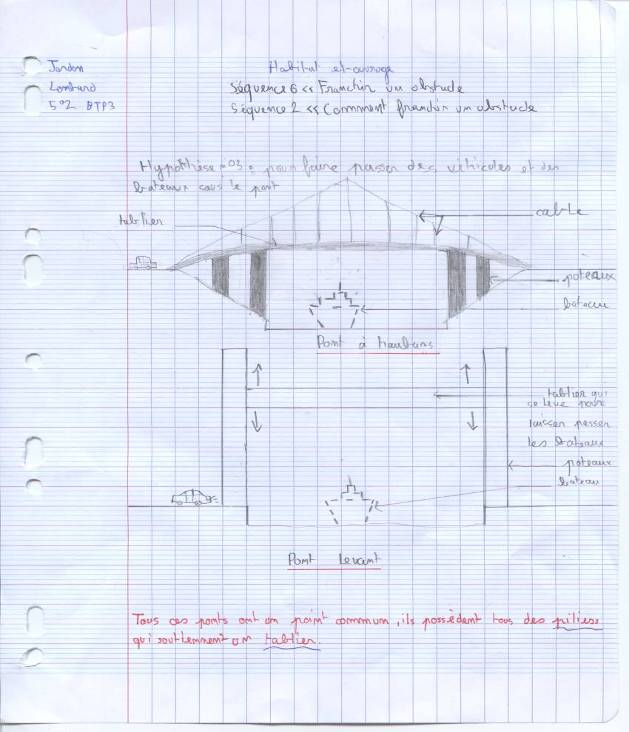 Jordan
Habitat et ouvrage
Lombard
Séquence 6 << Franchir un obstacle
5°2 BTP3
Séquence 2 << Comment franchir un obstacle
Hypothèse n°03 : pour faire passer des véhicules et des
bateaux sous le pont
tablier
cable
poteaux
bateau
Pont à haubans
tablier qui
se lève pour
laisser passer
les bateaux
poteaux
bateau
Pont levant
Tous ces ponts ont un point commun, ils possèdent tous des piliers
qui soutiennent un tablier.